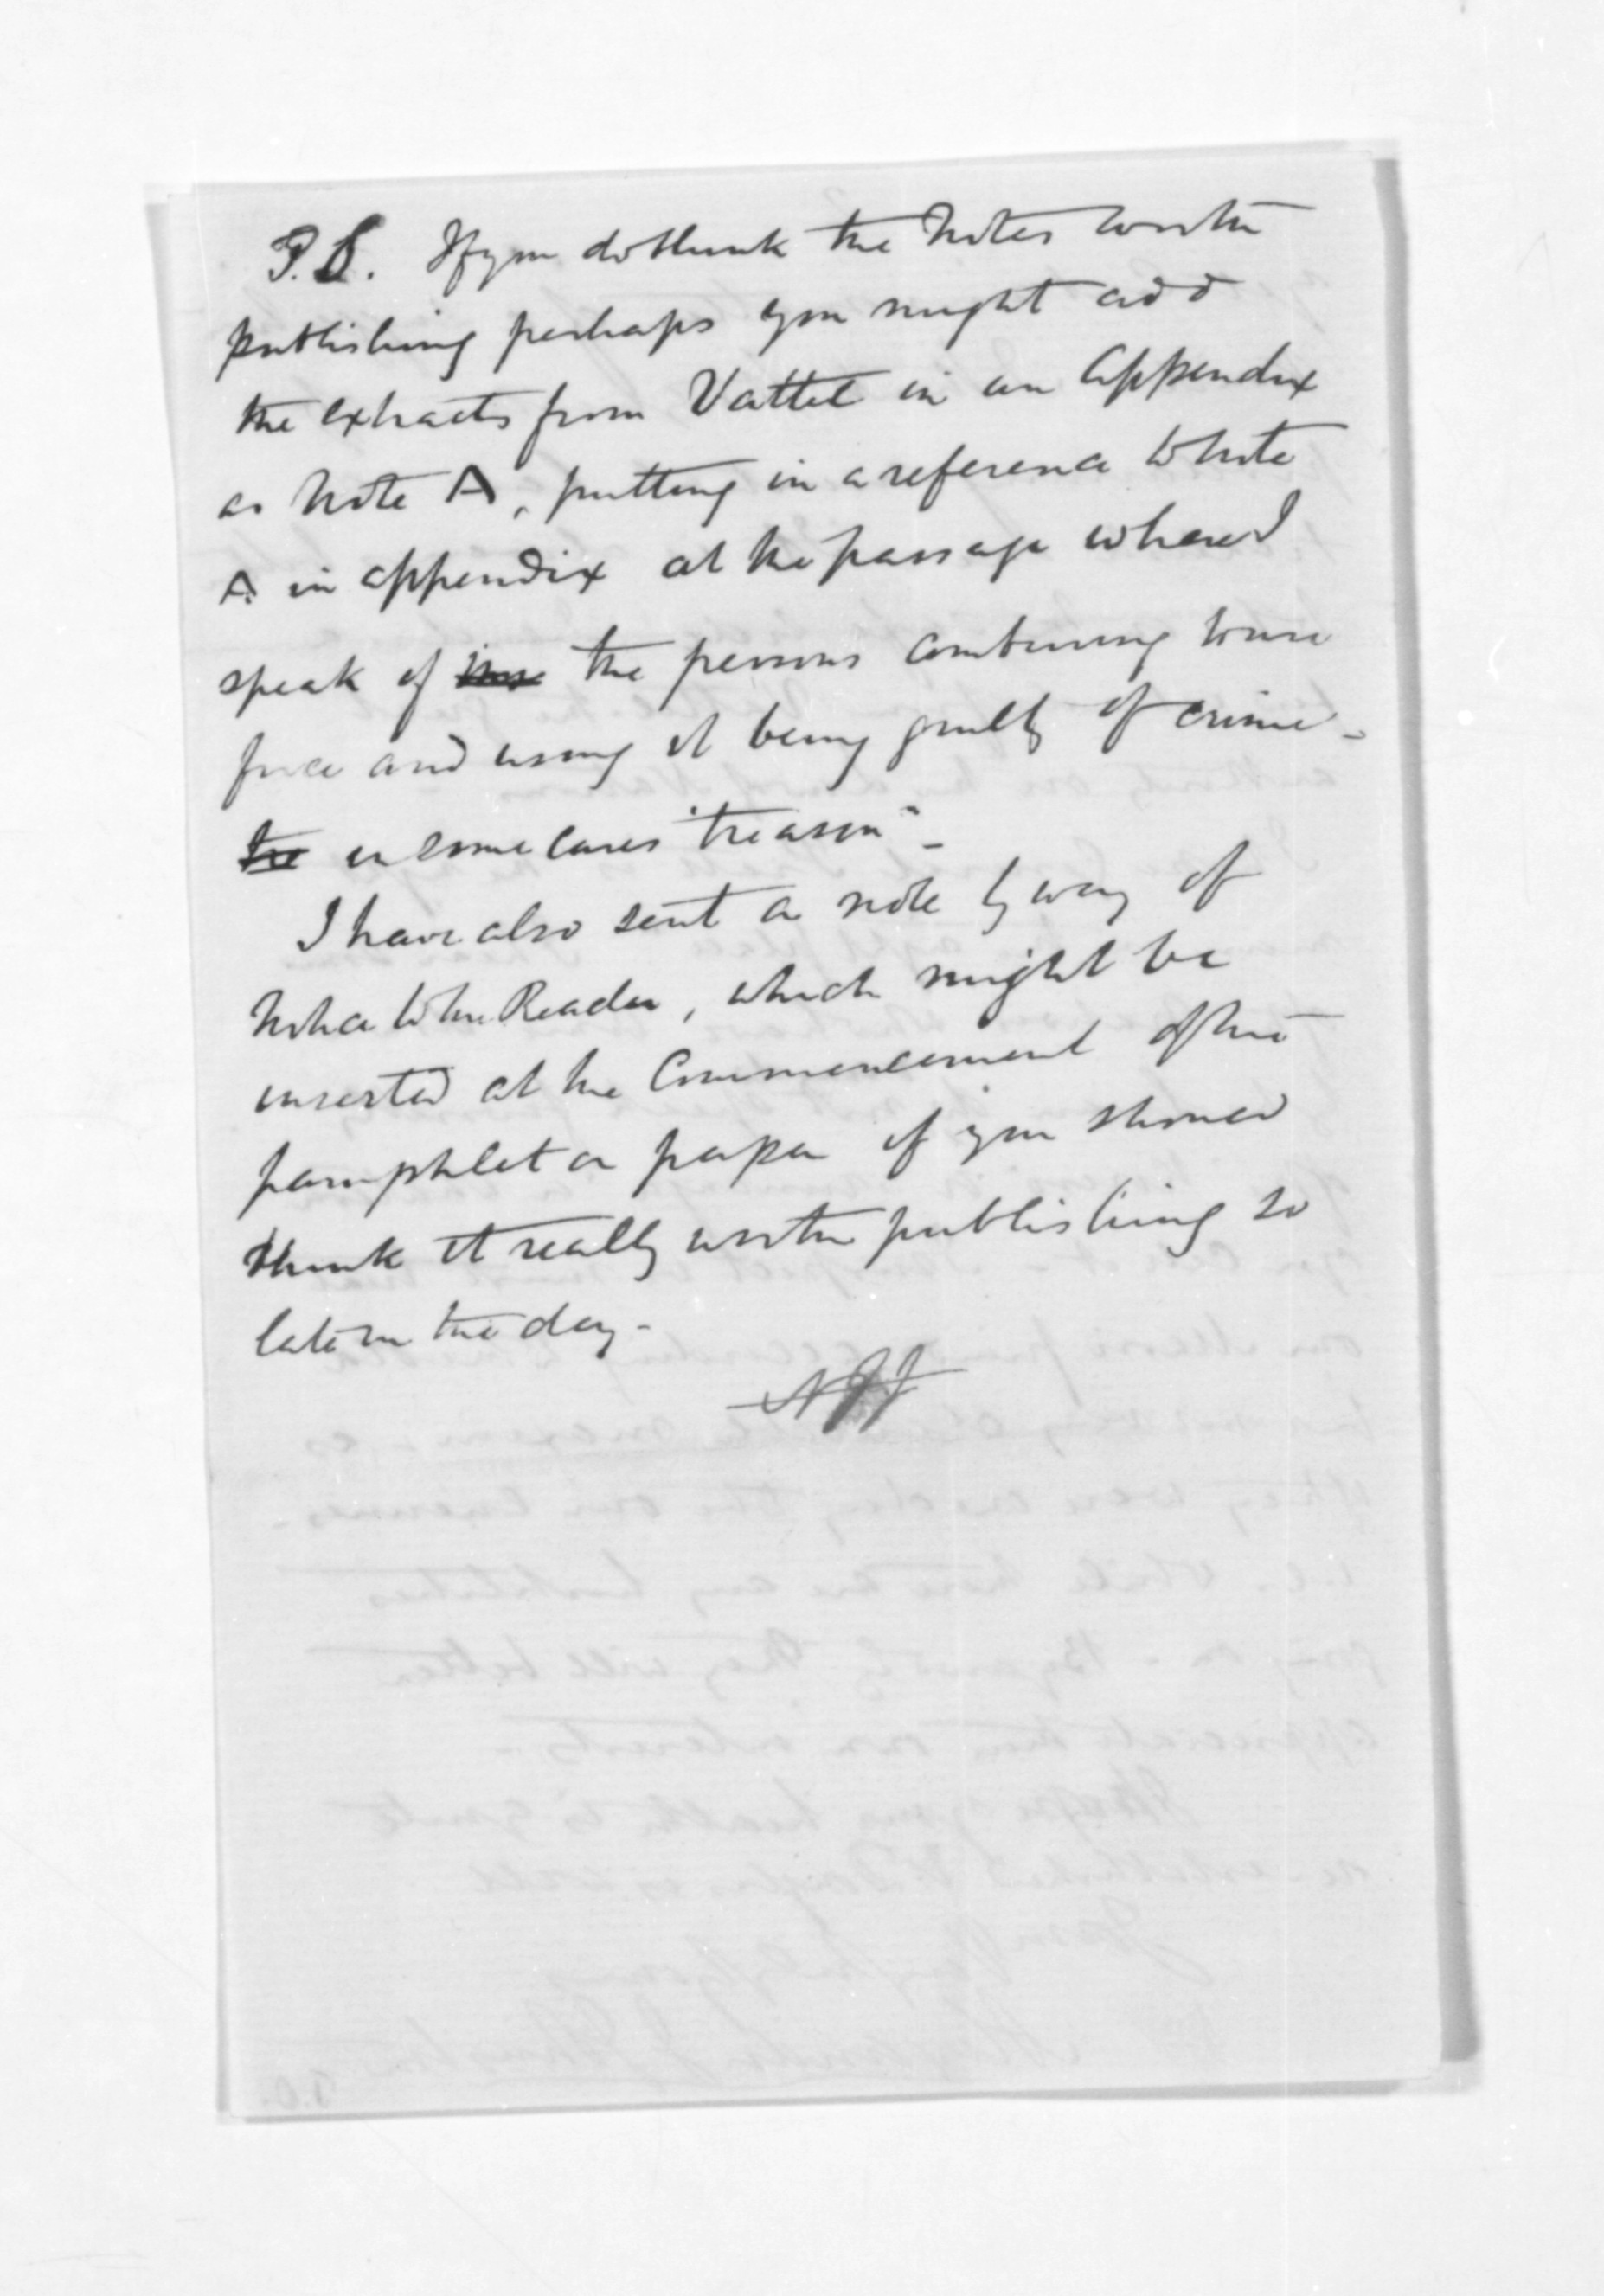 P.S. If you do think the Notes worth
publishing perhaps you might add
the extracts from Vattel in an Appendix
as Note A, putting in a reference to Note
A in appendix at the passage where I
speak of the persons combining to use
force and using it being guilty of crime -
in some cases "treason" -
I have also sent a note by way of
Notice to the Reader, which might be
inserted at the Commencement of the
pamphlet or paper if you should
think it really worth publishing so
late in the day -